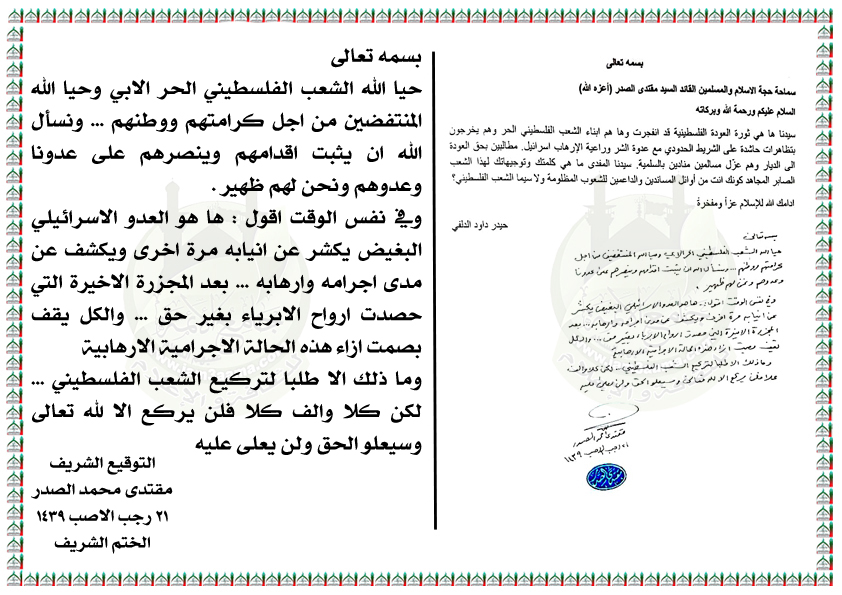 بسمه تعالى
سماحة حجة الاسلام والمسلمين القائد السيد مقتدى الصدر (أعزه الله)
السلام عليكم ورحمة الله وبركاته
سيدنا ها هي ثورة العودة الفلسطينية قد انفجرت وها هم ابناء الشعب الفلسطيني الحر وهم يخرجون
بتظاهرات حاشدة على الشريط الحدودي مع عدوة الشر وراعية الإرهاب اسرائيل. مطالبين بحق العودة
الى الديار وهم عزّل مسالمين منادين بالسلمية. سيدنا المفدى ما هي كلمتك وتوجيهاتك لهذا الشعب
الصابر المجاهد كونك انت من أوائل المساندين والداعمين للشعوب المظلومة ولا سيما الشعب الفلسطيني؟
ادامك الله للإسلام عزاً ومفخرةً
حيدر داود الدلفي
بسمه تعالى
حيا الله الشعب الفلسطيني الحر الابي وحيا الله المنتفضين من اجل
كرامتهم ووطنهم ... ونسأل الله ان يثبت اقدامهم وينصرهم على عدونا
وعدوهم ونحن لهم ظهير .
وفي نفس الوقت اقول : ها هو العدو الاسرائيلي البغيض يكشر
عن انيابه مرة اخرى ويكشف عن مدى اجرامه وارهابه ... بعد
المجزرة الاخيرة التي حصدت ارواح الابرياء بغير حق ... والكل
يقف بصمت ازاء هذه الحالة الاجرامية الارهابية
وما ذلك الا طلبا لتركيع الشعب الفلسطيني ... لكن كلا والف
كلا فلن يركع الا لله تعالى وسيعلو الحق ولن يعلى عليه
مقتدى محمد الصدر
٢١ رجب الاصب ١٤٣٩
بسمه تعالى
حيا الله الشعب الفلسطيني الحر الابي وحيا الله
المنتفضين من اجل كرامتهم ووطنهم ... ونسأل
الله ان يثبت اقدامهم وينصرهم على عدونا
وعدوهم ونحن لهم ظهير .
وفي نفس الوقت اقول : ها هو العدو الاسرائيلي
البغيض يكشر عن انيابه مرة اخرى ويكشف عن
مدى اجرامه وارهابه ... بعد المجزرة الاخيرة التي
حصدت ارواح الابرياء بغير حق ... والكل يقف
بصمت ازاء هذه الحالة الاجرامية الارهابية
وما ذلك الا طلبا لتركيع الشعب الفلسطيني ...
لكن كلا والف كلا فلن يركع الا لله تعالى
وسيعلو الحق ولن يعلى عليه
التوقيع الشريف
مقتدى محمد الصدر
٢١ رجب الاصب ١٤٣٩
الختم الشريف